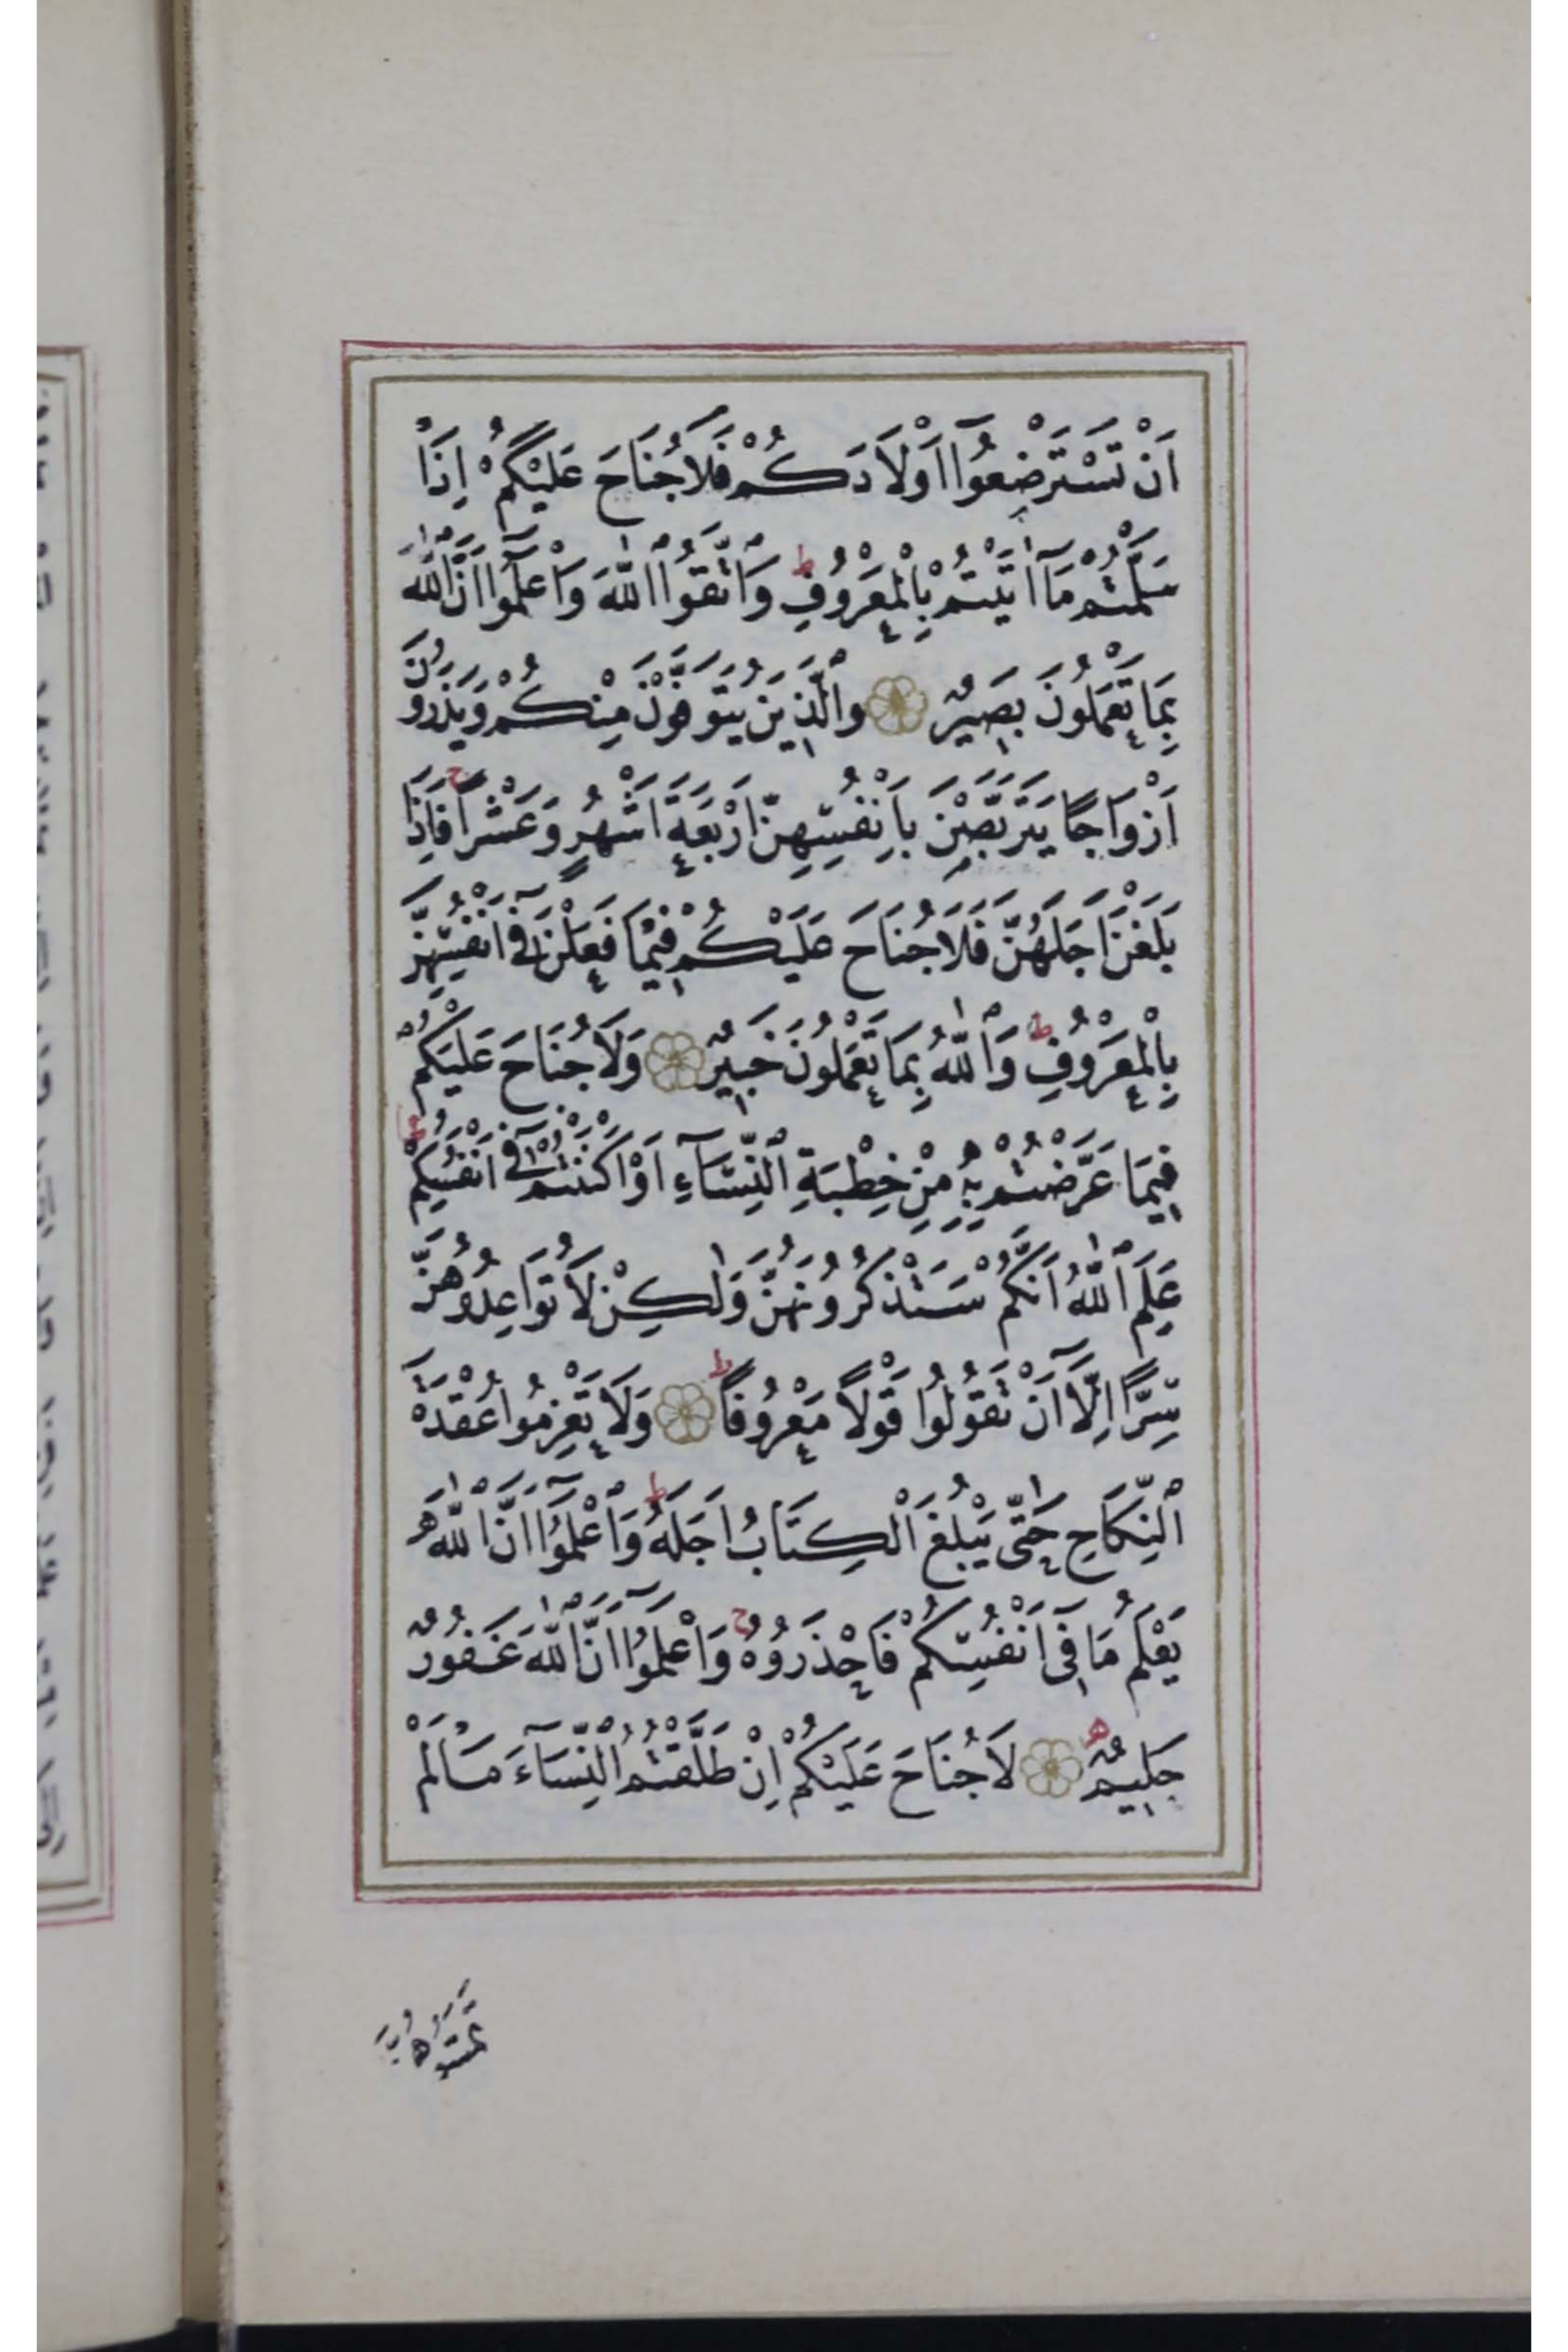 اَنْ تَسْتَرْضِعُٓوا اَوْلَادَكُمْ فَلَا جُنَاحَ عَلَيْكُمْ اِذَا
سَلَّمْتُمْ مَٓا اٰتَيْتُمْ بِالْمَعْرُوفِ ط وَاتَّقُوا اللّٰهَ وَاعْلَمُٓوا اَنَّ اللّٰهَ
بِمَا تَعْمَلُونَ بَصِيرٌ وَالَّذِينَ يُتَوَفَّوْنَ مِنْكُمْ وَيَذَرُونَ
اَزْوَاجًا يَتَرَبَّصْنَ بِاَنْفُسِهِنَّ اَرْبَعَةَ اَشْهُرٍ وَعَشْرًا ج فَاِذَا
بَلَغْنَ اَجَلَهُنَّ فَلَا جُنَاحَ عَلَيْكُمْ فِيمَا فَعَلْنَ فِٓى اَنْفُسِهِنَّ
بِالْمَعْرُوفِ ط وَاللّٰهُ بِمَا تَعْمَلُونَ خَبِيرٌ وَلَا جُنَاحَ عَلَيْكُمْ
فِيمَا عَرَّضْتُمْ بِهٖ مِنْ خِطْبَةِ النِّسَٓاءِ اَوْ اَكْنَنْتُمْ فِٓى اَنْفُسِكُمْ ط
عَلِمَ اللّٰهُ اَنَّكُمْ سَتَذْكُرُونَهُنَّ وَلٰكِنْ لَا تُوَاعِدُوهُنَّ
سِرًّا اِلَّٓا اَنْ تَقُولُوا قَوْلًا مَعْرُوفًا ط وَلَا تَعْزِمُوا عُقْدَةَ
النِّكَاحِ حَتّٰى يَبْلُغَ الْكِتَابُ اَجَلَهُ ط وَاعْلَمُٓوا اَنَّ اللّٰهَ
يَعْلَمُ مَا فِٓى اَنْفُسِكُمْ فَاحْذَرُوهُ ج وَاعْلَمُٓوا اَنَّ اللّٰهَ غَفُورٌ
حَلِيمٌ ه لَا جُنَاحَ عَلَيْكُمْ اِنْ طَلَّقْتُمُ النِّسَٓاءَ مَا لَمْ
تَمَسُّوهُنَّ